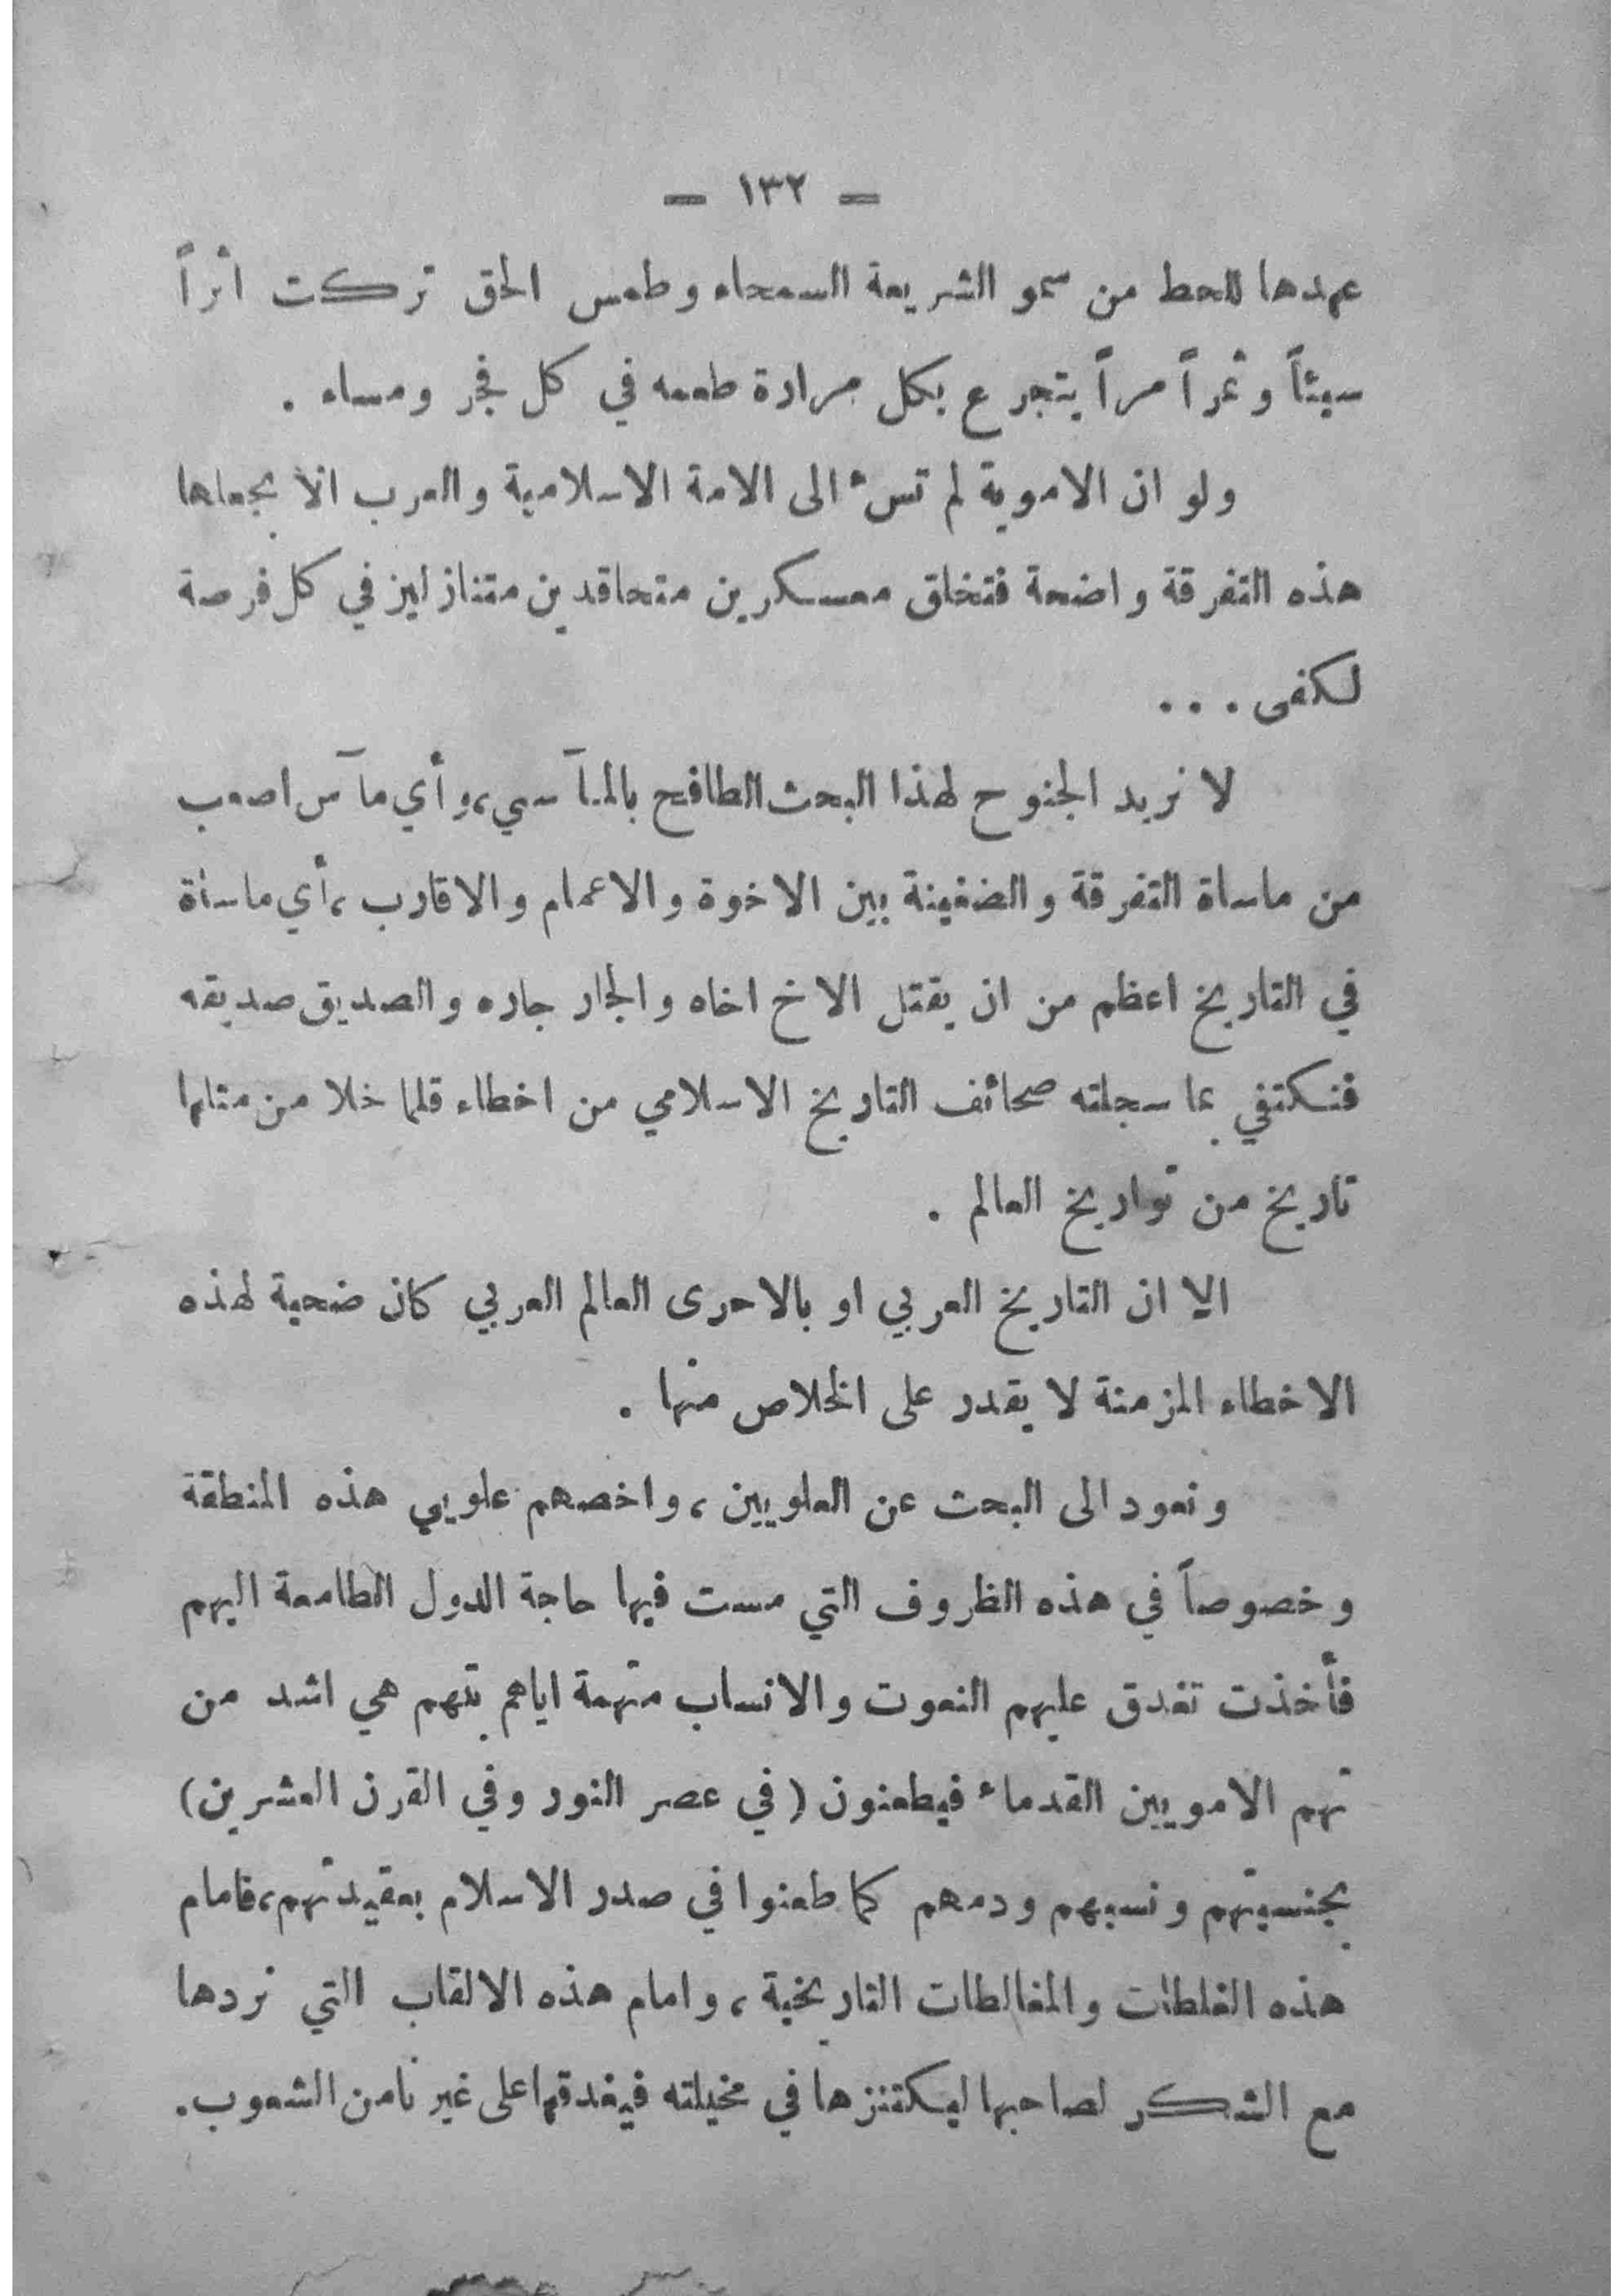 — ١٣٢ —
عهدها للحط من سمو الشريعة السمحاء وطمس الحق تركت اثراً
سيئاً وثمراً مراً يتجرع بكل مرارة طعمه في كل فجر ومساء .
ولو ان الاموية لم تسئ الى الامة الاسلامية والعرب الا بجعلها
هذه التفرقة واضحة فتخلق معسكرين متحاقدين متنازلين في كل فرصة
لكفى . . .
لا نريد الجنوح لهذا البحث الطافح بالمآسي، وأي مآس اصعب
من ماساة التفرقة والضغينة بين الاخوة والاعمام والاقارب ، أي ماسأة
في التاريخ اعظم من ان يقتل الاخ اخاه والجار جاره والصديق صديقه
فنكتفي بما سجلته صحائف التاريخ الاسلامي من اخطاء قلما خلا من مثلها
تاريخ من تواريخ العالم .
الا ان التاريخ العربي او بالاحرى العالم العربي كان ضحية لهذه
الاخطاء المزمنة لا يقدر على الخلاص منها .
ونعود الى البحث عن العلويين ، واخصهم علويي هذه المنطقة
وخصوصاً في هذه الظروف التي مست فيها حاجة الدول الطامعة اليهم
فأخذت تغدق عليهم النعوت والانساب متهمة اياهم بتهم هي اشد من
تهم الامويين القدماء فيطعنون ( في عصر النور وفي القرن العشرين )
بجنسيتهم ونسبهم ودمهم كما طعنوا في صدر الاسلام بعقيدتهم، فامام
هذه الغلطات والمغالطات التاريخية ، وامام هذه الالقاب التي نردها
مع الشكر لصاحبها ليكتنزها في مخيلته فيغدقها على غير نا من الشعوب .